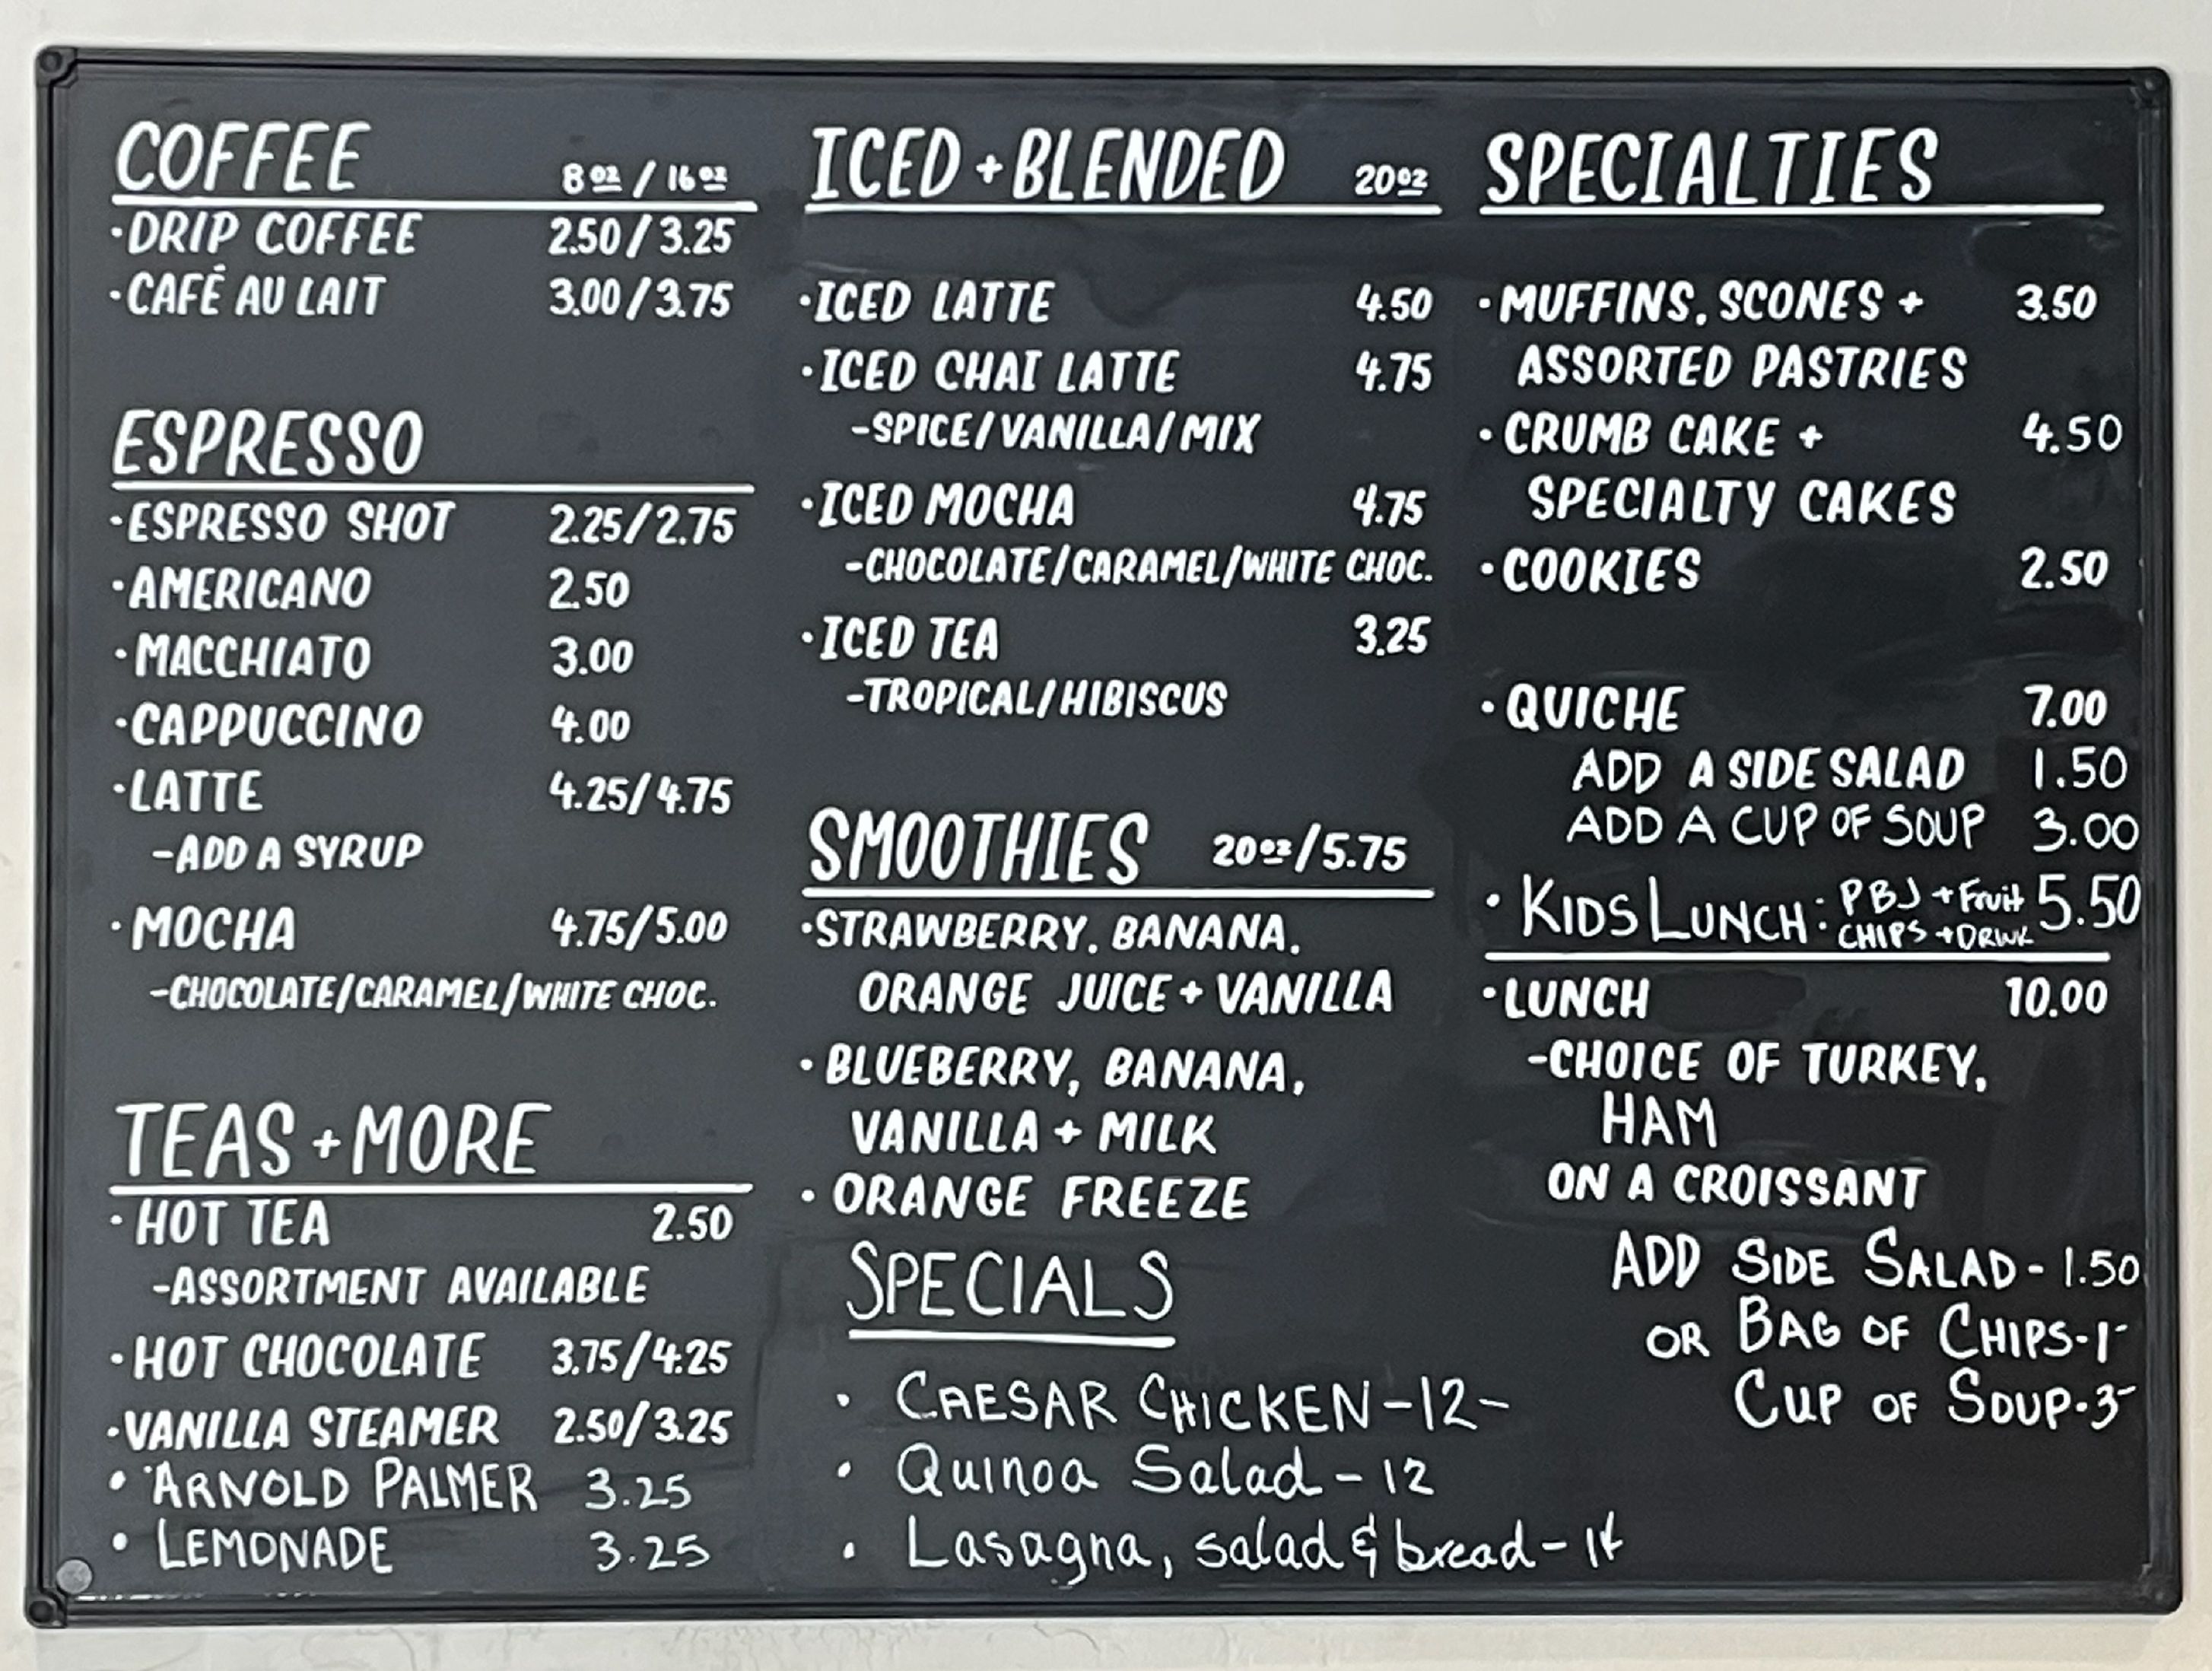 COFFEE 8oz / 16oz
·DRIP COFFEE 2.50/3.25
·CAFÉ AU LAIT 3.00/3.75
ESPRESSO
·ESPRESSO SHOT 2.25/2.75
·AMERICANO 2.50
·MACCHIATO 3.00
·CAPPUCCINO 4.00
·LATTE 4.25/4.75
-ADD A SYRUP
·MOCHA 4.75/5.00
-CHOCOLATE/CARAMEL/WHITE CHOC.
TEAS + MORE
·HOT TEA 2.50
-ASSORTMENT AVAILABLE
·HOT CHOCOLATE 3.75/4.25
·VANILLA STEAMER 2.50/3.25
·ARNOLD PALMER 3.25
·LEMONADE 3.25
ICED + BLENDED 20oz
·ICED LATTE 4.50
·ICED CHAI LATTE 4.75
-SPICE/VANILLA/MIX
·ICED MOCHA 4.75
-CHOCOLATE/CARAMEL/WHITE CHOC.
·ICED TEA 3.25
-TROPICAL/HIBISCUS
SMOOTHIES 20oz/5.75
·STRAWBERRY, BANANA,
ORANGE JUICE + VANILLA
·BLUEBERRY, BANANA,
VANILLA + MILK
·ORANGE FREEZE
SPECIALS
·CAESAR CHICKEN-12-
·Quinoa Salad-12
·Lasagna, salad & bread-14
SPECIALTIES
·MUFFINS, SCONES + 3.50
ASSORTED PASTRIES
·CRUMB CAKE + 4.50
SPECIALTY CAKES
·COOKIES 2.50
·QUICHE 7.00
ADD A SIDE SALAD 1.50
ADD A CUP OF SOUP 3.00
·KIDS LUNCH: PBJ + Fruit 5.50
CHIPS + DRINK
·LUNCH 10.00
-CHOICE OF TURKEY,
HAM
ON A CROISSANT
ADD SIDE SALAD-1.50
OR BAG OF CHIPS-1-
CUP OF SOUP-3-